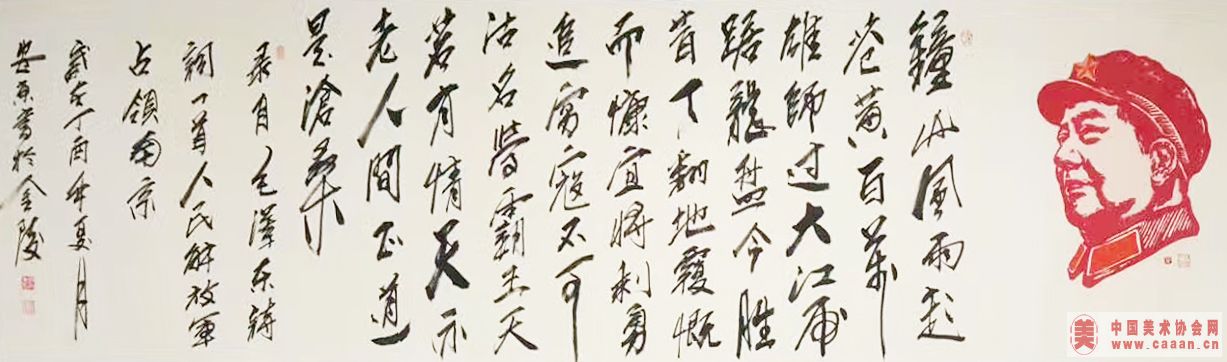 鐘山風雨起
蒼黃百萬
雄師過大江虎
踞龍盤今勝
昔天翻地覆慨
而慷宜將剩勇
追窮寇不可
沽名學霸王天
若有情天亦
老人間正道
是滄桑
录自毛澤东詩
詞一首人民解放軍
占領南京
歲在丁酉年夏月
書於金陵
美 中国美术协会网
www.caaan.cn